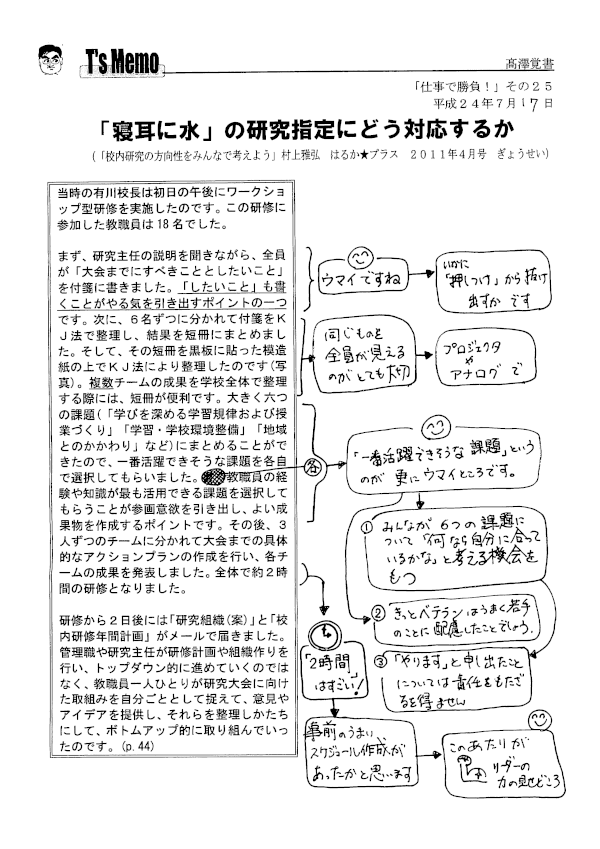 T's Memo
髙澤覚書
「仕事で勝負！」その２５
平成２４年７月１７日
「寝耳に水」の研究指定にどう対応するか
(「校内研究の方向性をみんなで考えよう」村上雅弘　はるか★プラス　２０１１年４月号　ぎょうせい)
当時の有川校長は初日の午後にワークショ
ップ型研修を実施したのです。この研修に
参加した教職員は18名でした。
まず、研究主任の説明を聞きながら、全員
が「大会までにすべきこととしたいこと」
を付箋に書きました。「したいこと」も書
くことがやる気を引き出すポイントの一つ
です。次に、６名ずつに分かれて付箋をＫ
Ｊ法で整理し、結果を短冊にまとめまし
た。そして、その短冊を黒板に貼った模造
紙の上でＫＪ法により整理したのです(写
真)。複数チームの成果を学校全体で整理
する際には、短冊が便利です。大きく六つ
の課題(「学びを深める学習規律および授
業づくり」「学習・学校環境整備」「地域
とのかかわり」など)にまとめることがで
きたので、一番活躍できそうな課題を各自
で選択してもらいました。教職員の経
験や知識が最も活用できる課題を選択して
もらうことが参画意欲を引き出し、よい成
果物を作成するポイントです。その後、３
人ずつのチームに分かれて大会までの具体
的なアクションプランの作成を行い、各チ
ームの成果を発表しました。全体で約２時
間の研修となりました。
研修から２日後には「研究組織(案)」と「校
内研修年間計画」がメールで届きました。
管理職や研究主任が研修計画や組織作りを
行い、トップダウン的に進めていくのでは
なく、教職員一人ひとりが研究大会に向け
た取組みを自分ごととして捉えて、意見や
アイデアを提供し、それらを整理しかたち
にして、ボトムアップ的に取り組んでいっ
たのです。(p.44)
ウマイですね
いかに
「押しつけ」から抜け
出すか です
同じものを
全員が見える
のが とても大切
プロジェクタ
や
アナログ で
各
「一番活躍できそうな課題」という
のが 更にウマイところです。
① みんなが ６つの 課題に
ついて「何なら自分に合って
いるかな」と考える機会を
もつ
② きっとベテランはうまく若手
のことに配慮したことでしょう。
③ 「やります」と申し出たこと
については責任をもたざ
るを得ません
「２時間」
はすごい！
事前のうまい
スケジュール作成が
あったかと思います
このあたりが
リーダーの
力の見せどころ